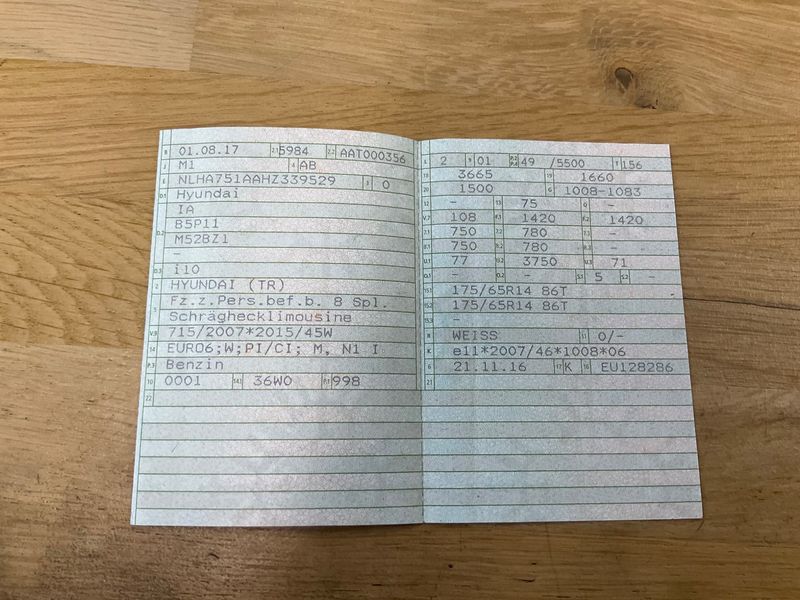 B 01.08.17 2.1 5984 2.2 AAT000356
J M1 4 AB
E NLHA751AAHZ339529 3 0
D.1 Hyundai
IA
D.2 B5P11
M52BZ1
-
D.3 i10
2 HYUNDAI (TR)
5 Fz.z.Pers.bef.b. 8 Spl.
Schräghecklimousine
V.9 715/2007*2015/45W
14 EURO6;W;PI/CI; M, N1 I
P.3 Benzin
10 0001 14.1 36W0 P.1 998
22
L 2 9 01 P.2 P.4 49 /5500 T 156
18 3665 19 1660
20 1500 G 1008-1083
12 - 13 75 Q -
V.7 108 F.1 1420 F.2 1420
7.1 750 7.2 780 7.3 -
8.1 750 8.2 780 8.3 -
U.1 77 U.2 3750 U.3 71
O.1 - O.2 - S.1 5 S.2 -
15.1 175/65R14 86T
15.2 175/65R14 86T
15.3 -
R WEISS 11 0/-
K e11*2007/46*1008*06
6 21.11.16 17 K 16 EU128286
21